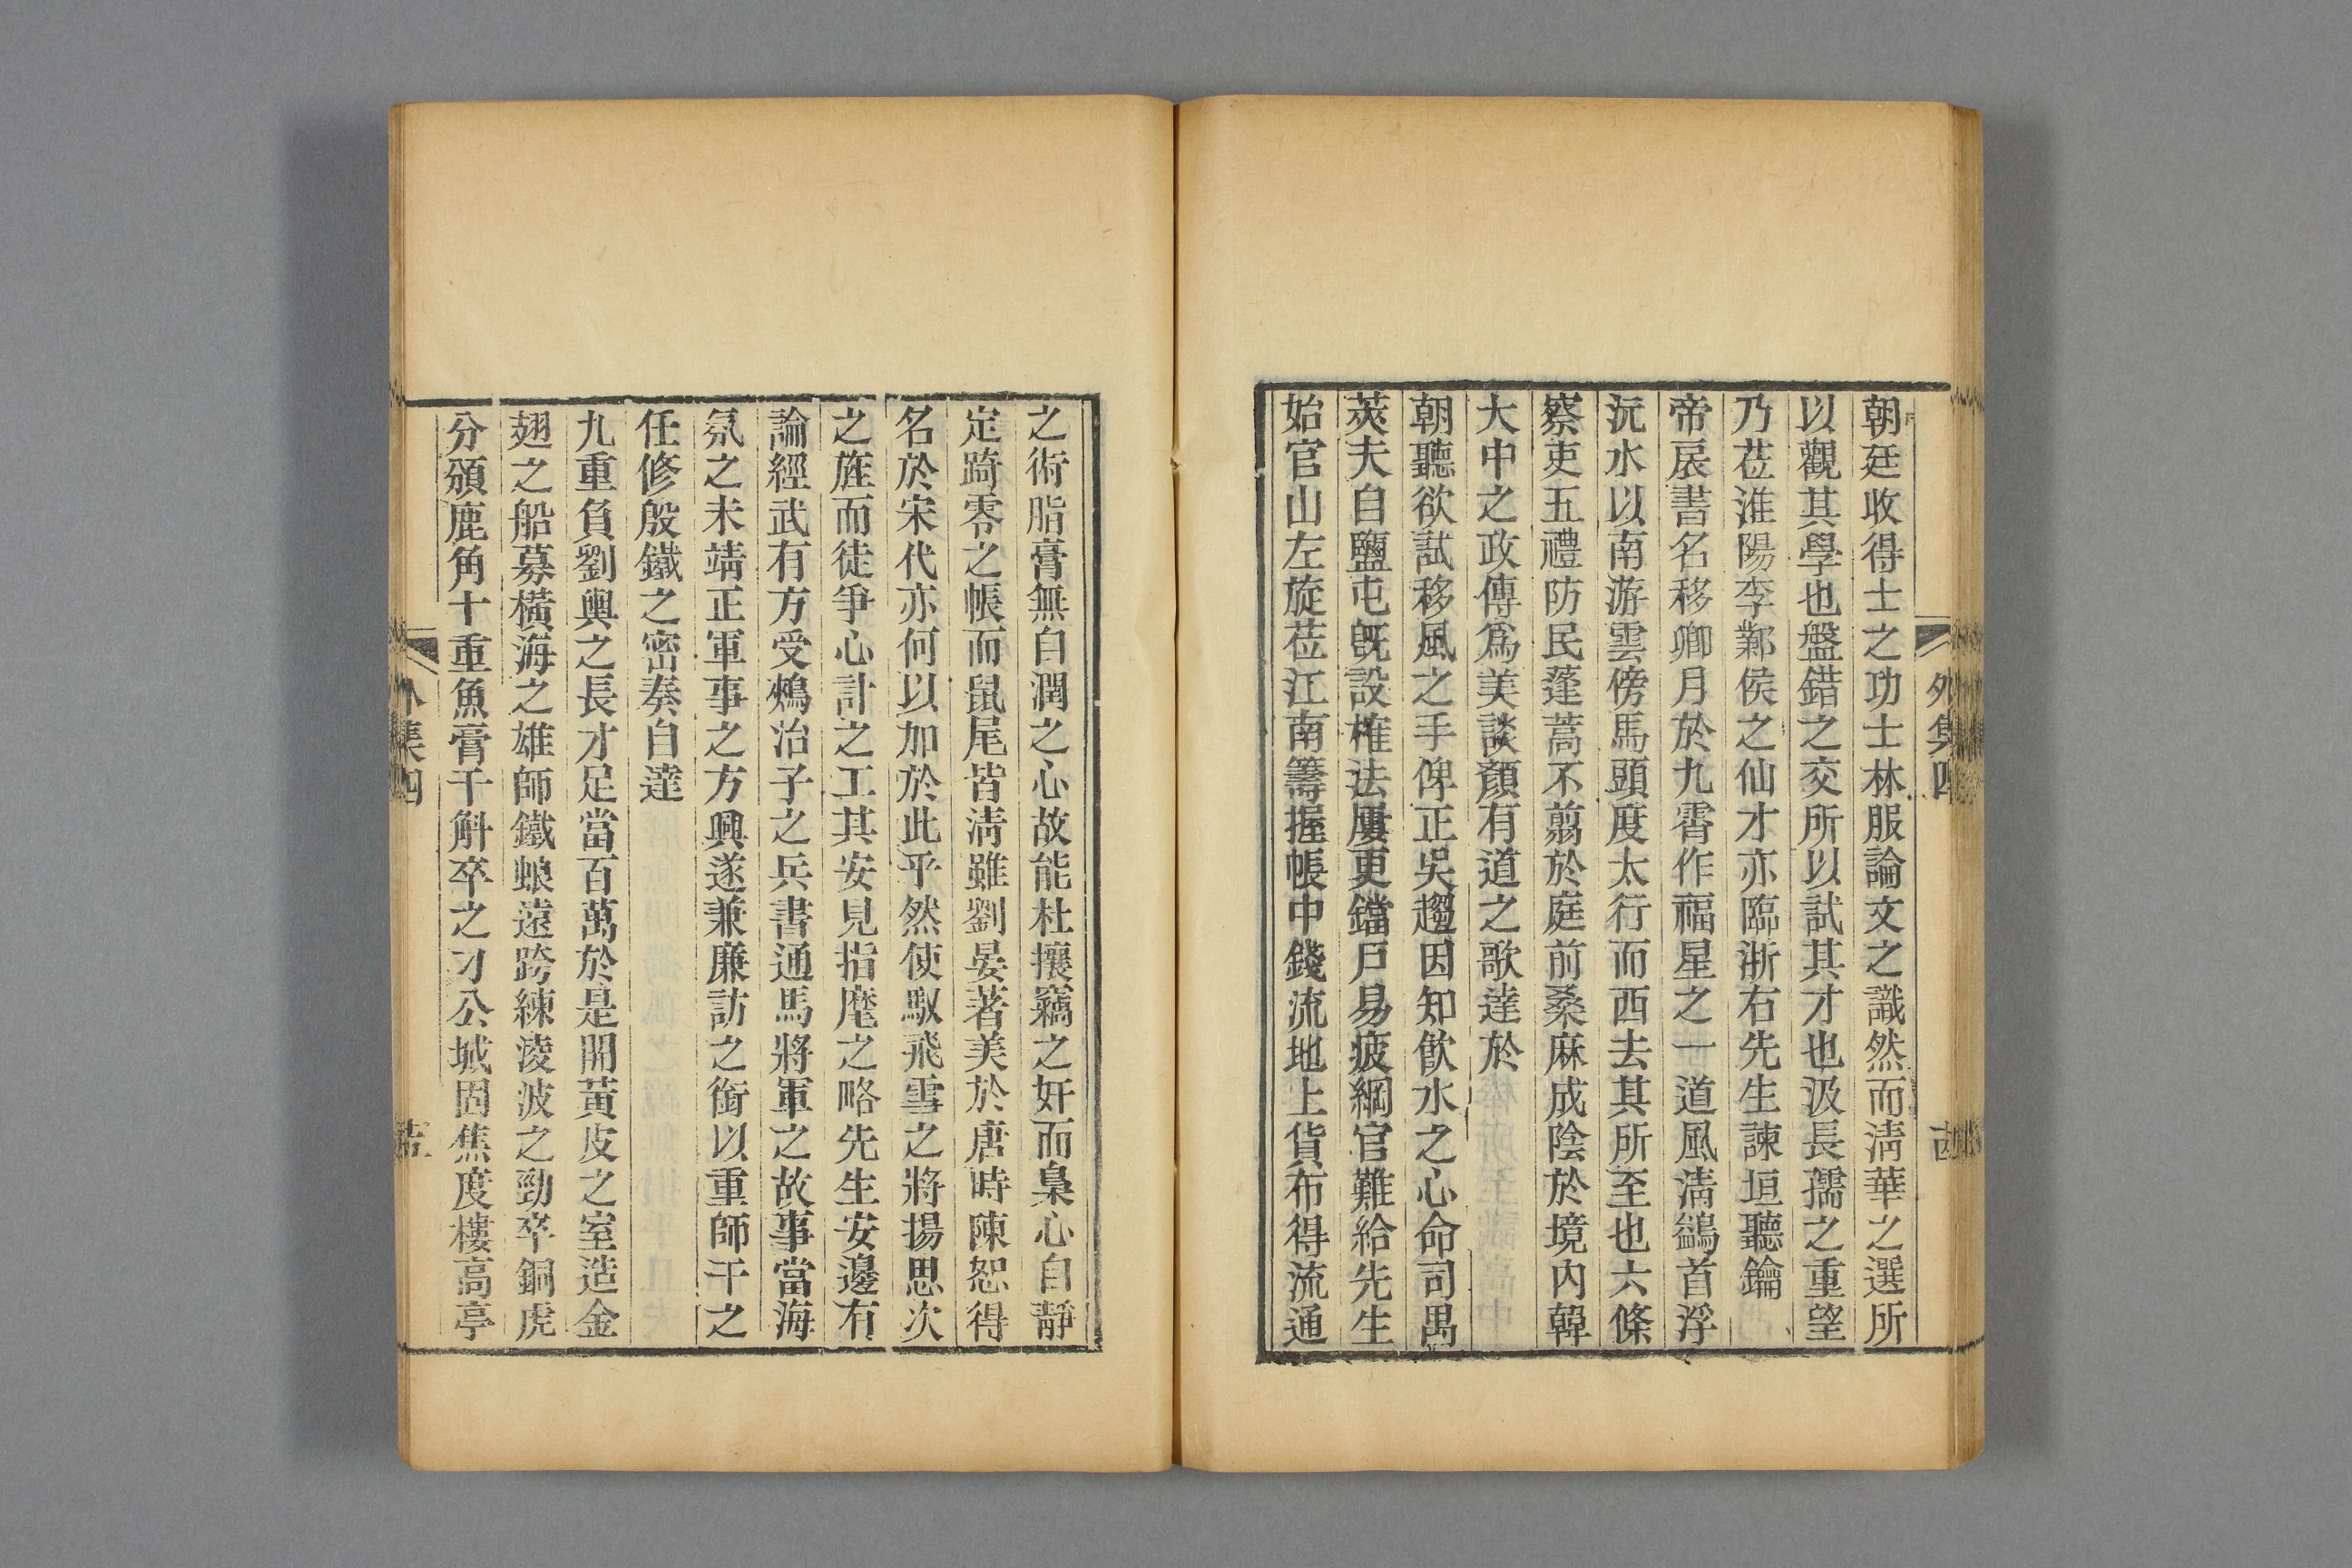 外集四
朝廷收得士之功士林服論文之識然而清華之選所
以觀其學也盤錯之交所以試其才也汲長孺之重望
乃莅淮陽李鄴侯之仙才亦臨浙右先生諫垣聽鑰
帝扆書名移卿月於九霄作福星之一道風清鷁首浮
沅水以南游雲傍馬頭度太行而西去其所至也六條
察吏五禮防民蓬蒿不翦於庭前桑麻成陰於境內韓
大中之政傳爲美談顏有道之歌達於
朝聽欲試移風之手俾正吳趨因知飲水之心命司禺
莢夫自鹽屯旣設榷法屢更鐺戶易疲綱官難給先生
始官山左旋莅江南籌握帳中錢流地上貨布得流通
之術脂膏無自潤之心故能杜攘竊之奸而梟心自靜
定踦零之帳而鼠尾皆清雖劉晏著美於唐時陳恕得
名於宋代亦何以加於此乎然使馭飛雪之將揚思次
之旌而徒爭心計之工其安見指麾之略先生安邊有
論經武有方受鴉治子之兵書通馬將軍之故事當海
氛之未靖正軍事之方興遂兼廉訪之銜以重師干之
任修殷鐵之密奏自達
九重負劉輿之長才足當百萬於是開黃皮之室造金
翅之船募橫海之雄師鐵蜋遠跨練淩波之勁卒銅虎
分頒鹿角十重魚膏千斛卒之刁公城固焦度樓高亭
外集四